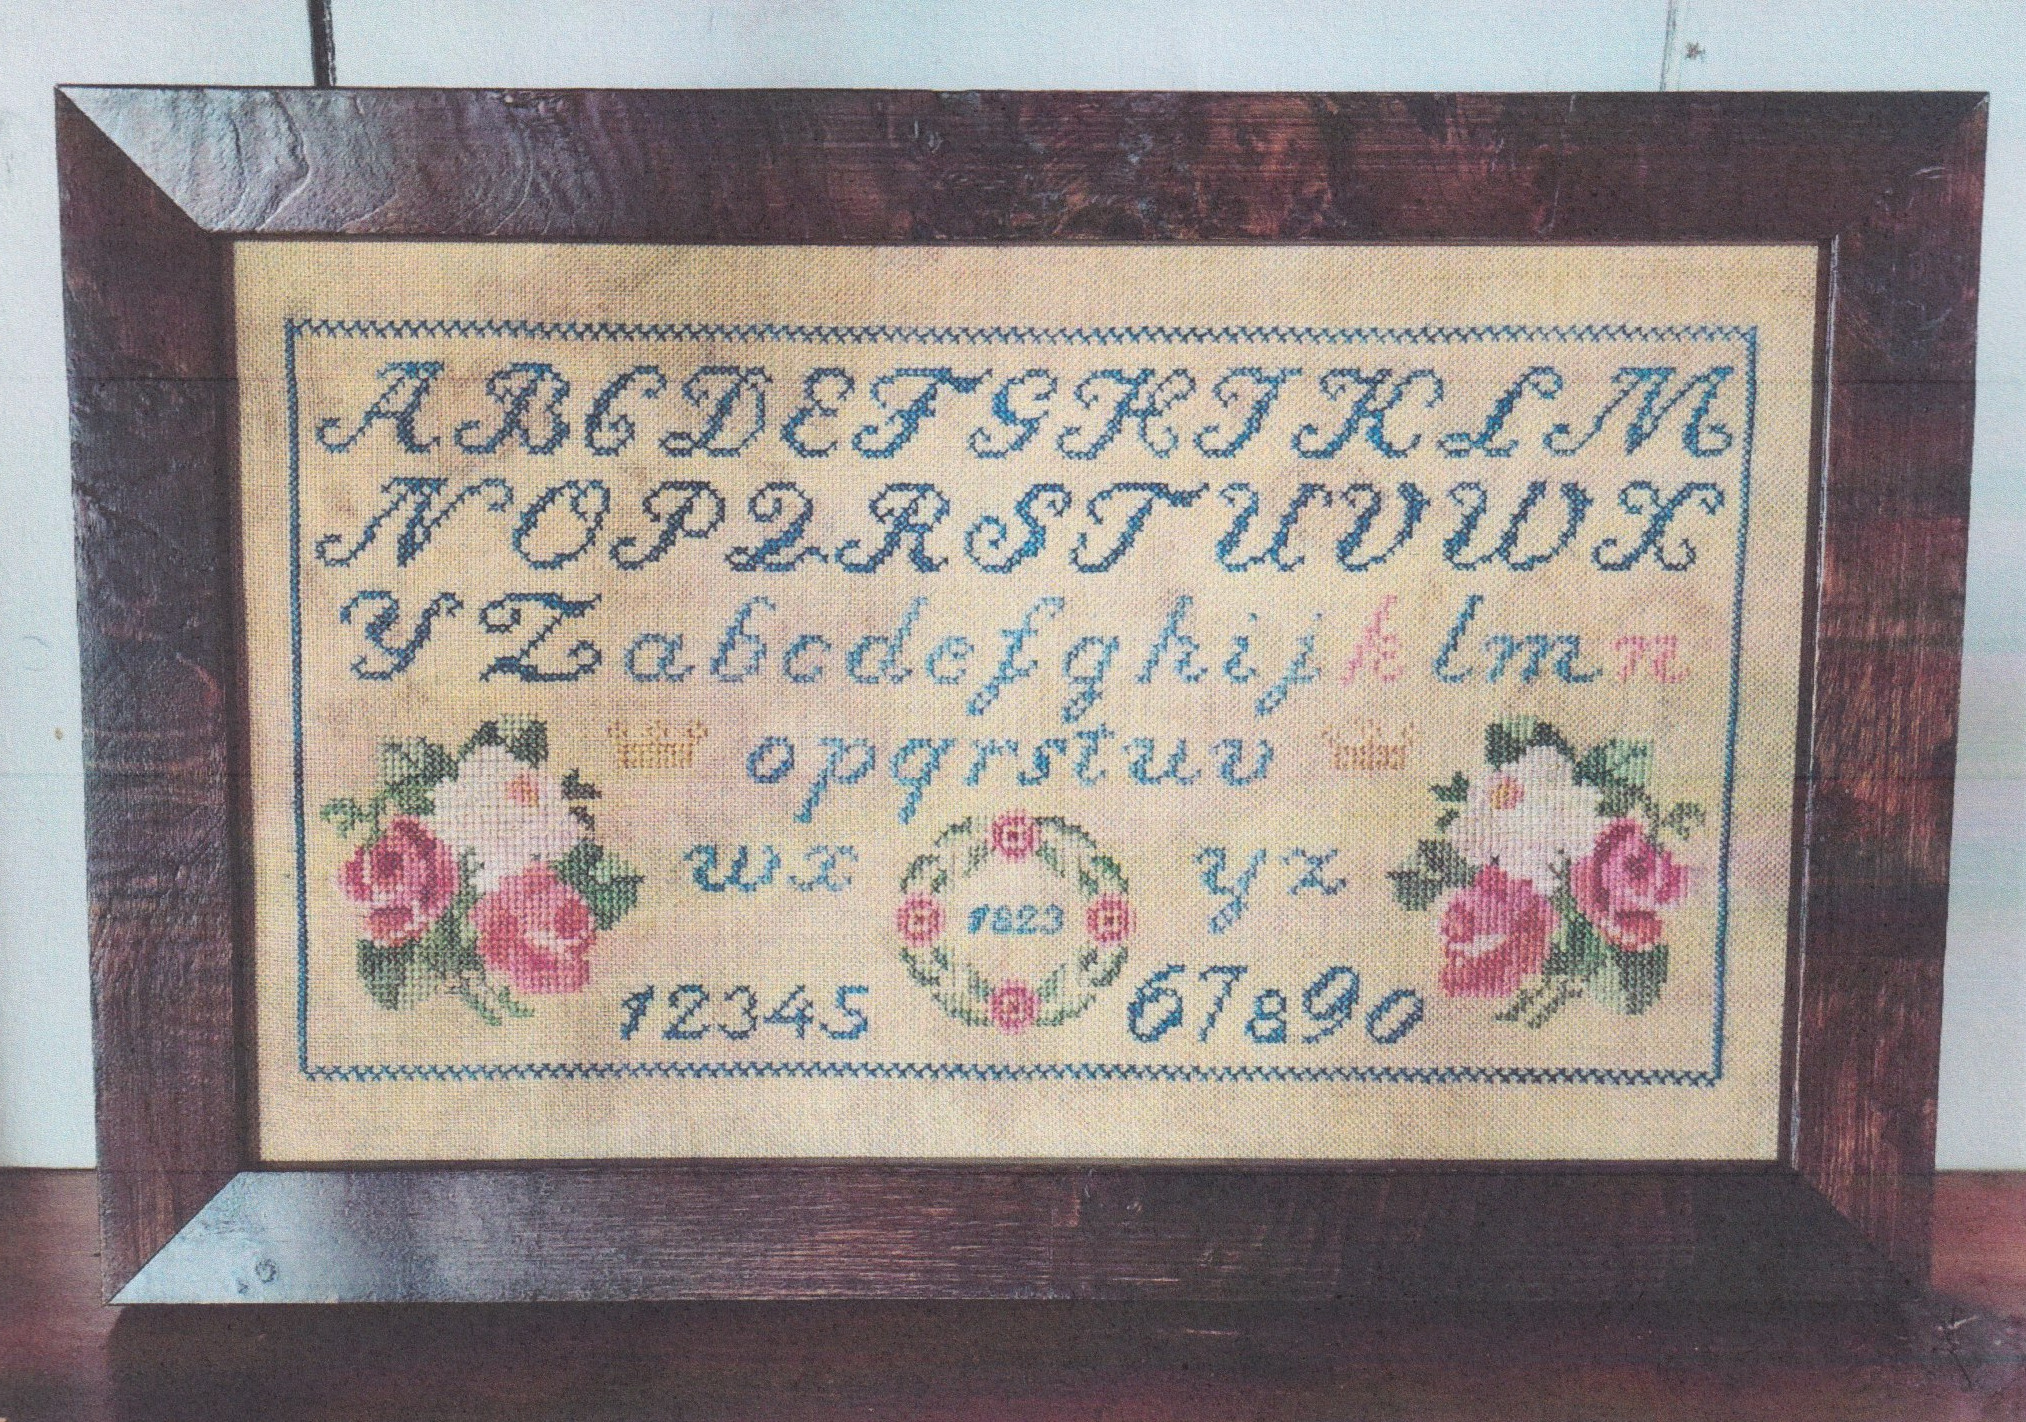 A B C D E F G H I K L M
N O P Q R S T U V W X
Y Z a b c d e f g h i j k l m n
o p q r s t u v
w x y z
1823
1 2 3 4 5 6 7 8 9 0